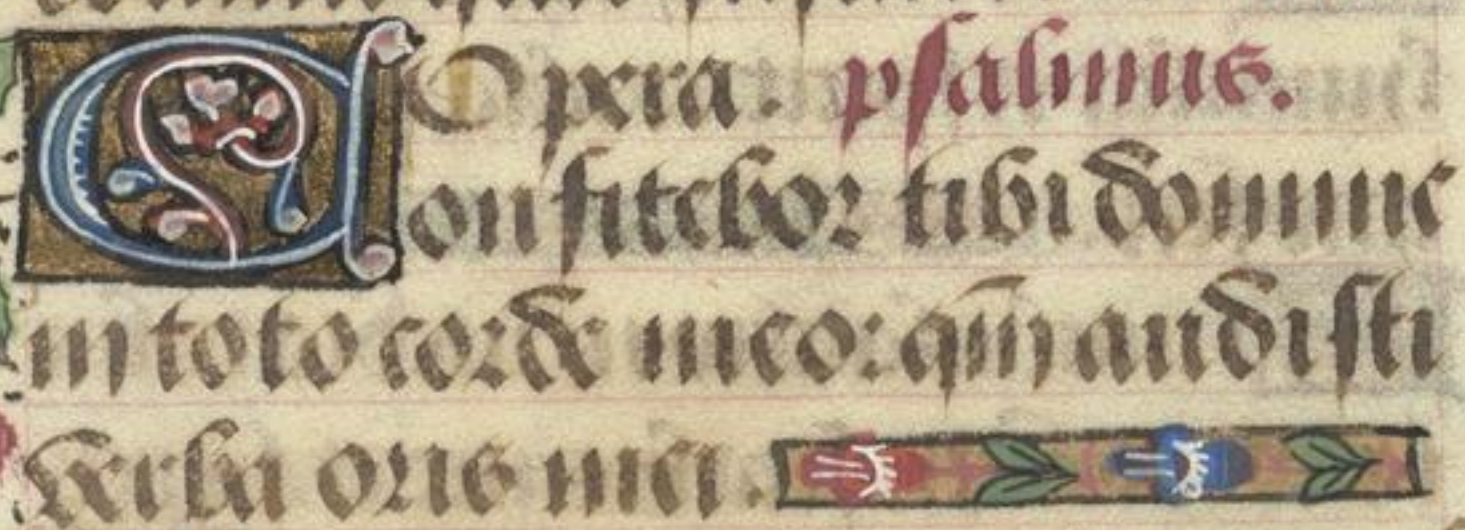 Opera. psalmus.
Confitebor tibi domine
in toto corde meo: qm̄ audisti
verba oris mei.